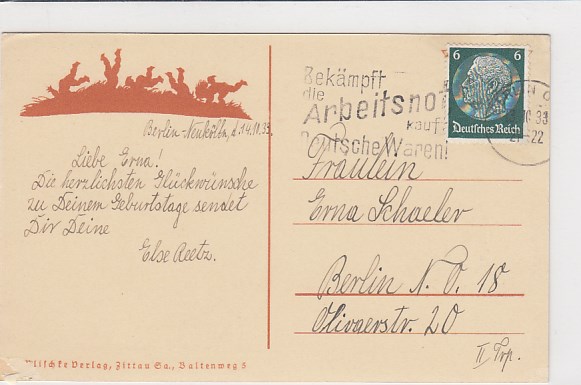 Berlin-Neukölln, d. 14.11.33.
Liebe Erna!
Die herzlichsten Glückwünsche
zu Deinem Geburtstage sendet
Dir Deine
Else Reetz.
Bekämpft
die
Arbeitsnot
kauft
Deutsche Waren!
6 6
Deutsches Reich
33
22
Fräulein
Erna Schaeler
Berlin N. O. 18
Olivaerstr. 20
II Trp.
Klischke Verlag, Zittau Sa., Baltenweg 5